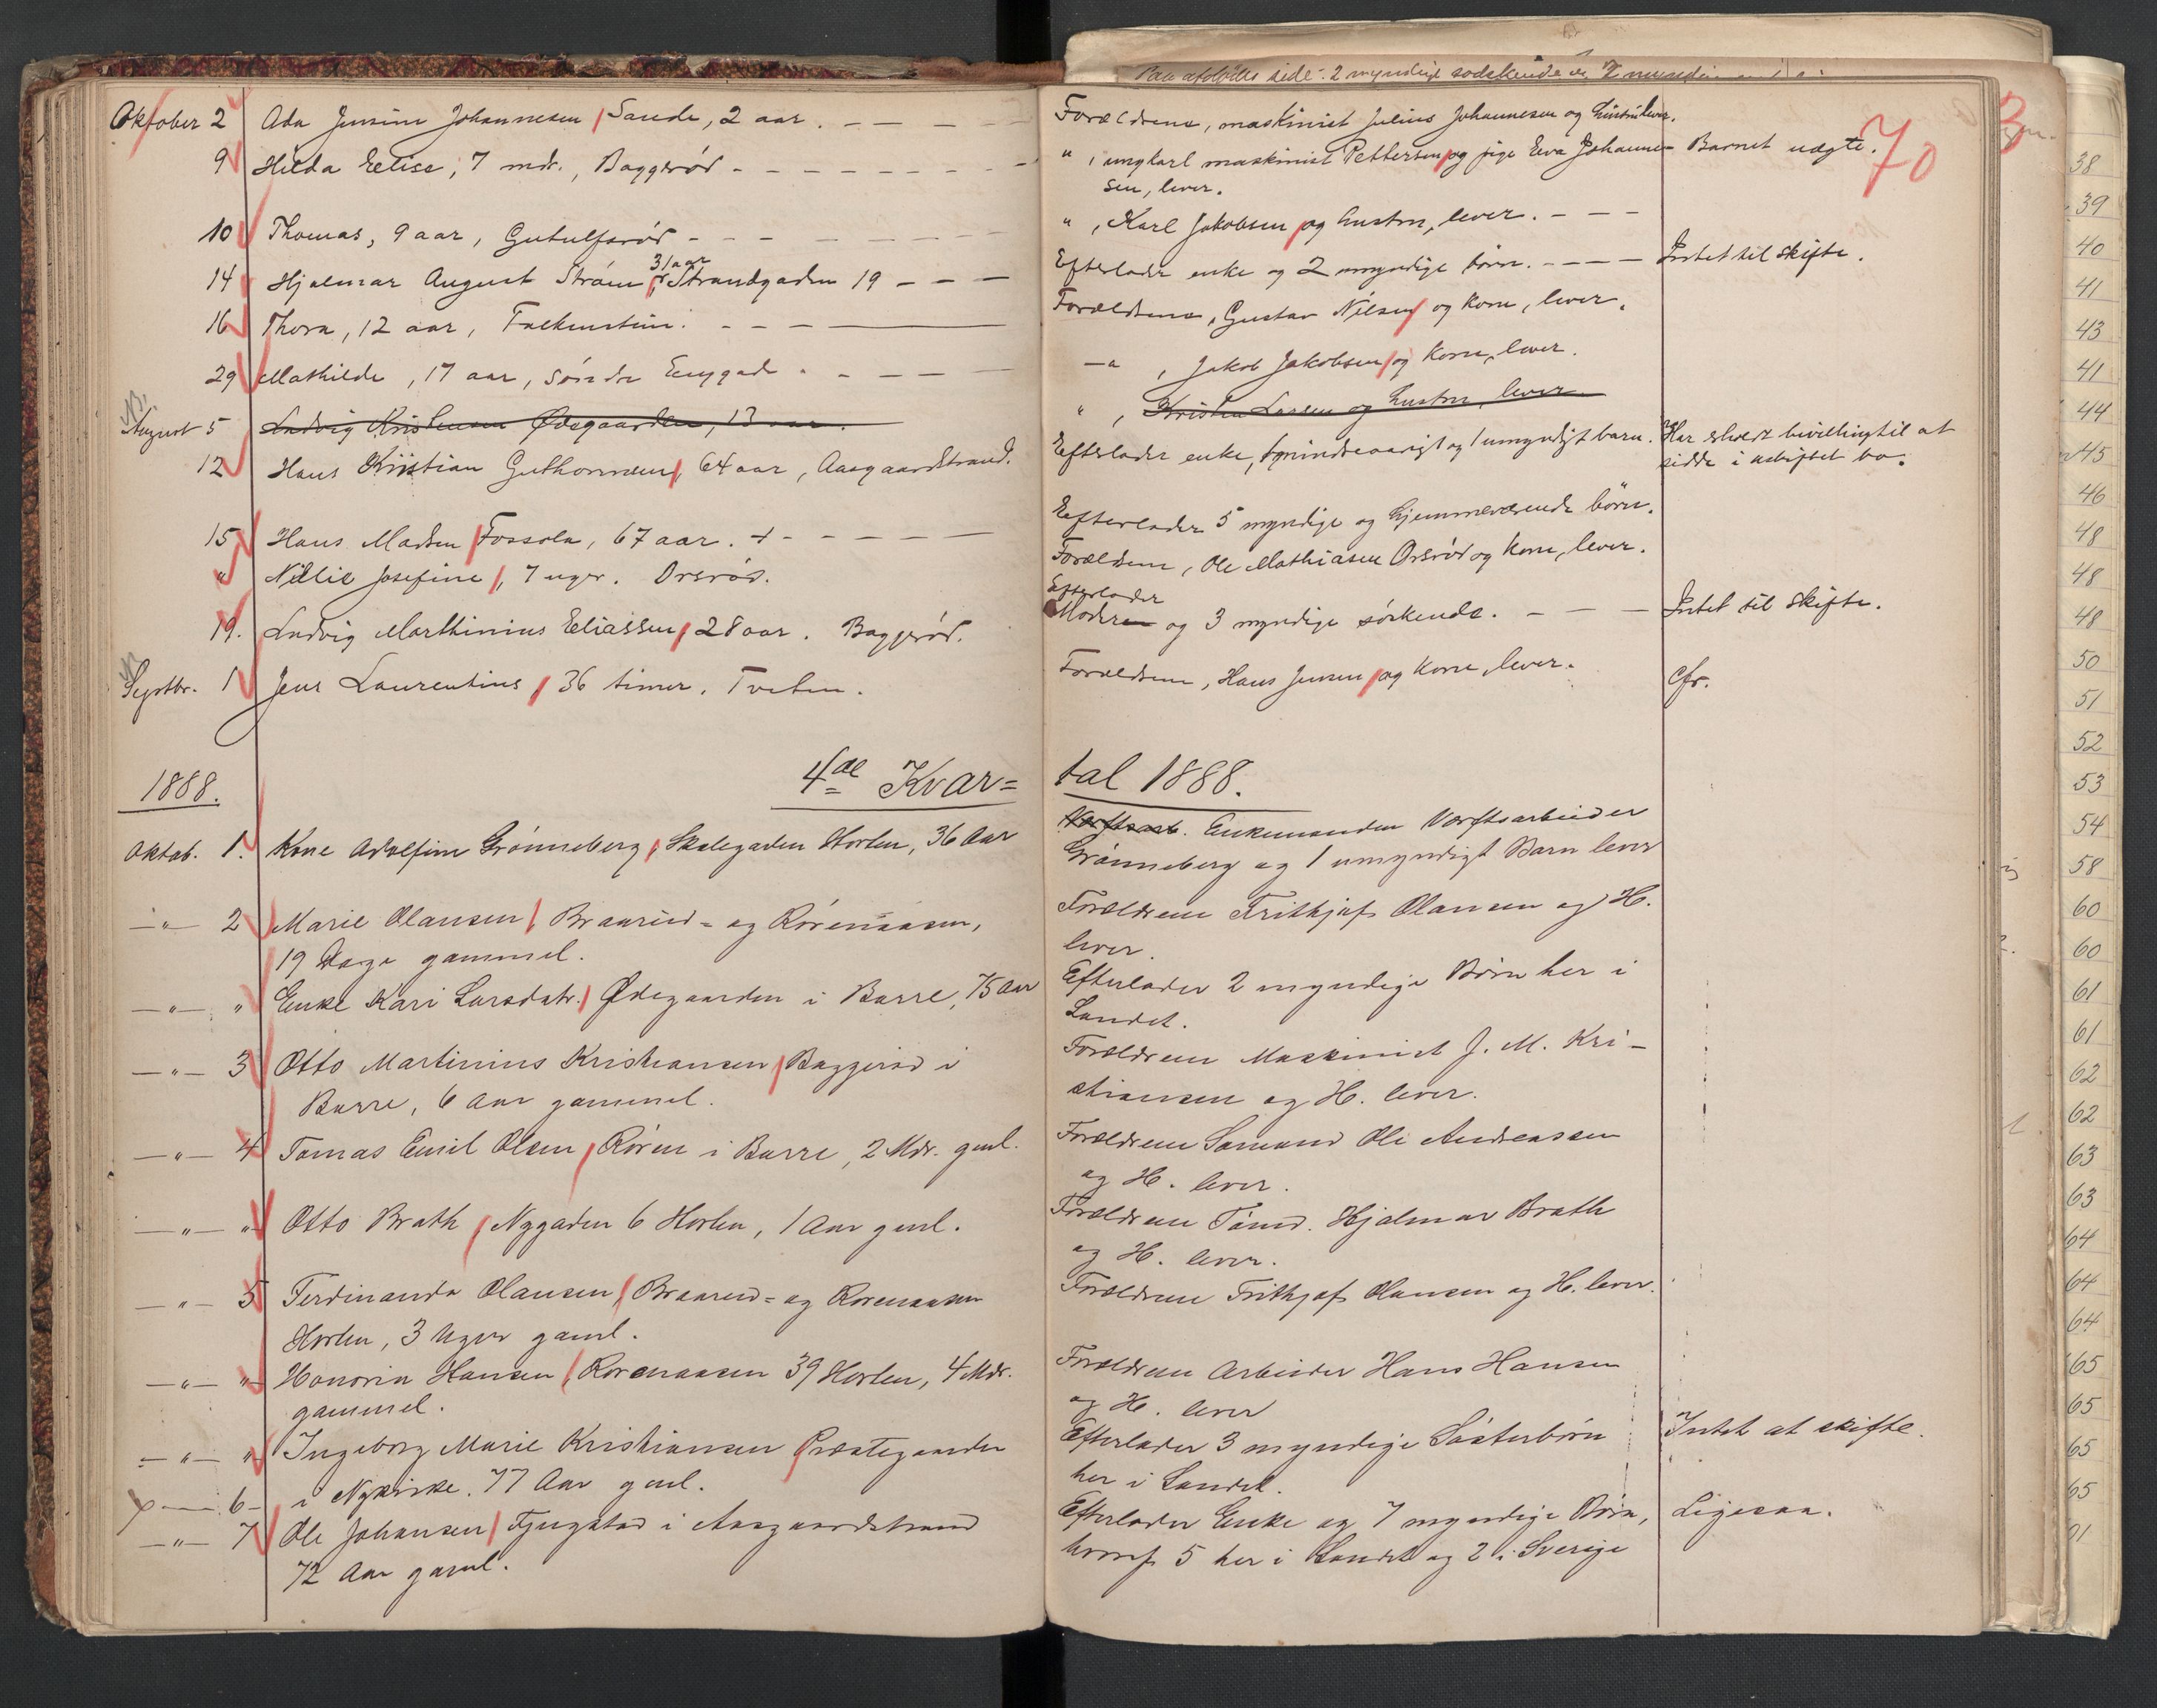 Paa afdødes side: 2 myndige
70
Oktober 2 Ada Jensine Johannesen, Sande, 2 aar. Forældrene, maskinist Julius Johannesen og hustru lever.
9 Hilda Eelise, 7 mdr., Baggerød " , ungkarl maskinist Pettersen og pige Eva Johanne- Barnet uægte.
sen, lever.
10 Thomas, 9 aar, Gutulfsrød " , Karl Jakobsen og hustru, lever.
31 aar
14 Hjalmar August Strøm, Strandgaden 19 Efterlader enke og 2 umyndige børn. Intet til skifte.
16 Thora, 12 aar, Falkensten. Forældrene, Gustav Nilsen og kone, lever.
29 Mathilde, 17 aar, søndre Enggade —"— , Jakob Jakobsen og kone, lever.
August 5 Ludvig Kristensen Ødegaarden, 13 aar. " , Kristen Larsen og hustru, lever
12 Hans Kristian Guthormsen, 64 aar, Aasgaardstrand. Efterlader enke, 1 mindreaarigt og 1 umyndigt barn. Har erholdt bevilling til at
sidde i uskiftet bo.
15 Hans Madsen Fossola, 67 aar. + Eefterlader 5 myndige og hjemmeværende børn.
" Nillie Josefine, 7 uger. Orerød. Forældrene, Ole Mathiasen Orerød og kone, lever.
Efterlader
19. Ludvig Marthinius Eeliassen, 28 aar. Baggerød. Moderen og 3 myndige søskende. Intet til skifte.
Septbr. 1 Jens Laurentius, 36 timer. Tveten. Forældrene, Hans Jensen og kone, lever. Cfr.
1888. 4de Kvar= tal 1888.
Oktob. 1. Kone Adolfine Grønneberg, Skolegaden Horten, 36 Aar Værftsarb. Enkemanden Værftsarbeider
Grønneberg og 1 umyndigt Barn lever
—"— 2 Marie Olausen, Braarud= og Rørenaasen, Forældrene Frithjof Olausen og H.
19 Dage gammel. lever.
—"— " Enke Kari Larsdatr. Ødegaarden i Borre, 75 Aar Efterlader 2 myndige Børn her i
Landet.
—"— 3 Otto Martinius Kristiansen, Baggerød i Forældrene Maskinist J. M. Kri-
Borre, 6 Aar gammel. stiansen og H. lever.
—"— 4 Tomas Emil Olsen, Røren i Borre, 2 Mdr. gml. Forældrene Sømand Ole Andreassen
og H. lever.
—"— " Otto Brath, Nygaden 6 Horten, 1 Aar gml. Forældrene Tømd. Hjalmar Brath
og H. lever.
—"— 5 Ferdinanda Olausen, Braarud= og Rørenaasen Forældrene Frithjof Olausen og H. lever.
Horten, 3 Uger gaml.
—"— " Honoria Hansen, Rørenaasen 39 Horten, 4 Mdr. Forældrene Arbeider Hans Hansen
gammel. og H. lever
—"— " Ingeborg Marie Kristiansen Præstegaarden Efterlader 3 myndige Søsterbørn Intet at skifte.
6 i Nykirke. 77 Aar gml. her i Landet.
—"— 7 Ole Johansen, Fjugstad i Aasgaardstrand Efterlader Enke og 7 myndige Børn, Ligesaa.
72 Aar gaml. hvoraf 5 her i Landet og 2 i Sverige
3
38
39
40
41
43
41
44
45
46
48
48
48
50
51
52
53
54
58
60
60
61
61
62
62
63
63
64
64
64
65
65
65
65
91